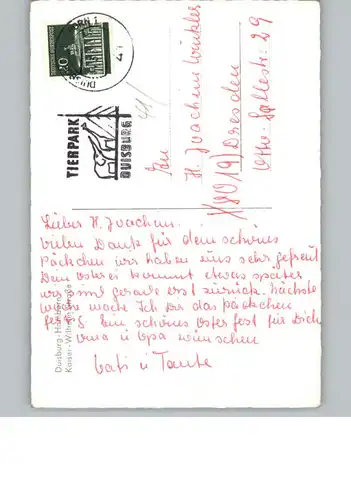 TIERPARK
DUISBURG
41
An
H. Joachim Winkler
X8019) Dresden
Otto. Gallestr 29
Lieber H. Joachim.
vielen Dank für dein schönes
Päckchen wir haben uns sehr gefreut
Dein Osterei kommt etwas später
wir sind gerade erst zurück. Nächste
Woche mache Ich Dir das päckchen
fertig. Ein schönes Osterfest für Dich
Oma u Opa wünschen
Vati u Tante
Duisburg-Homberg
Kaiser-Wilhelm